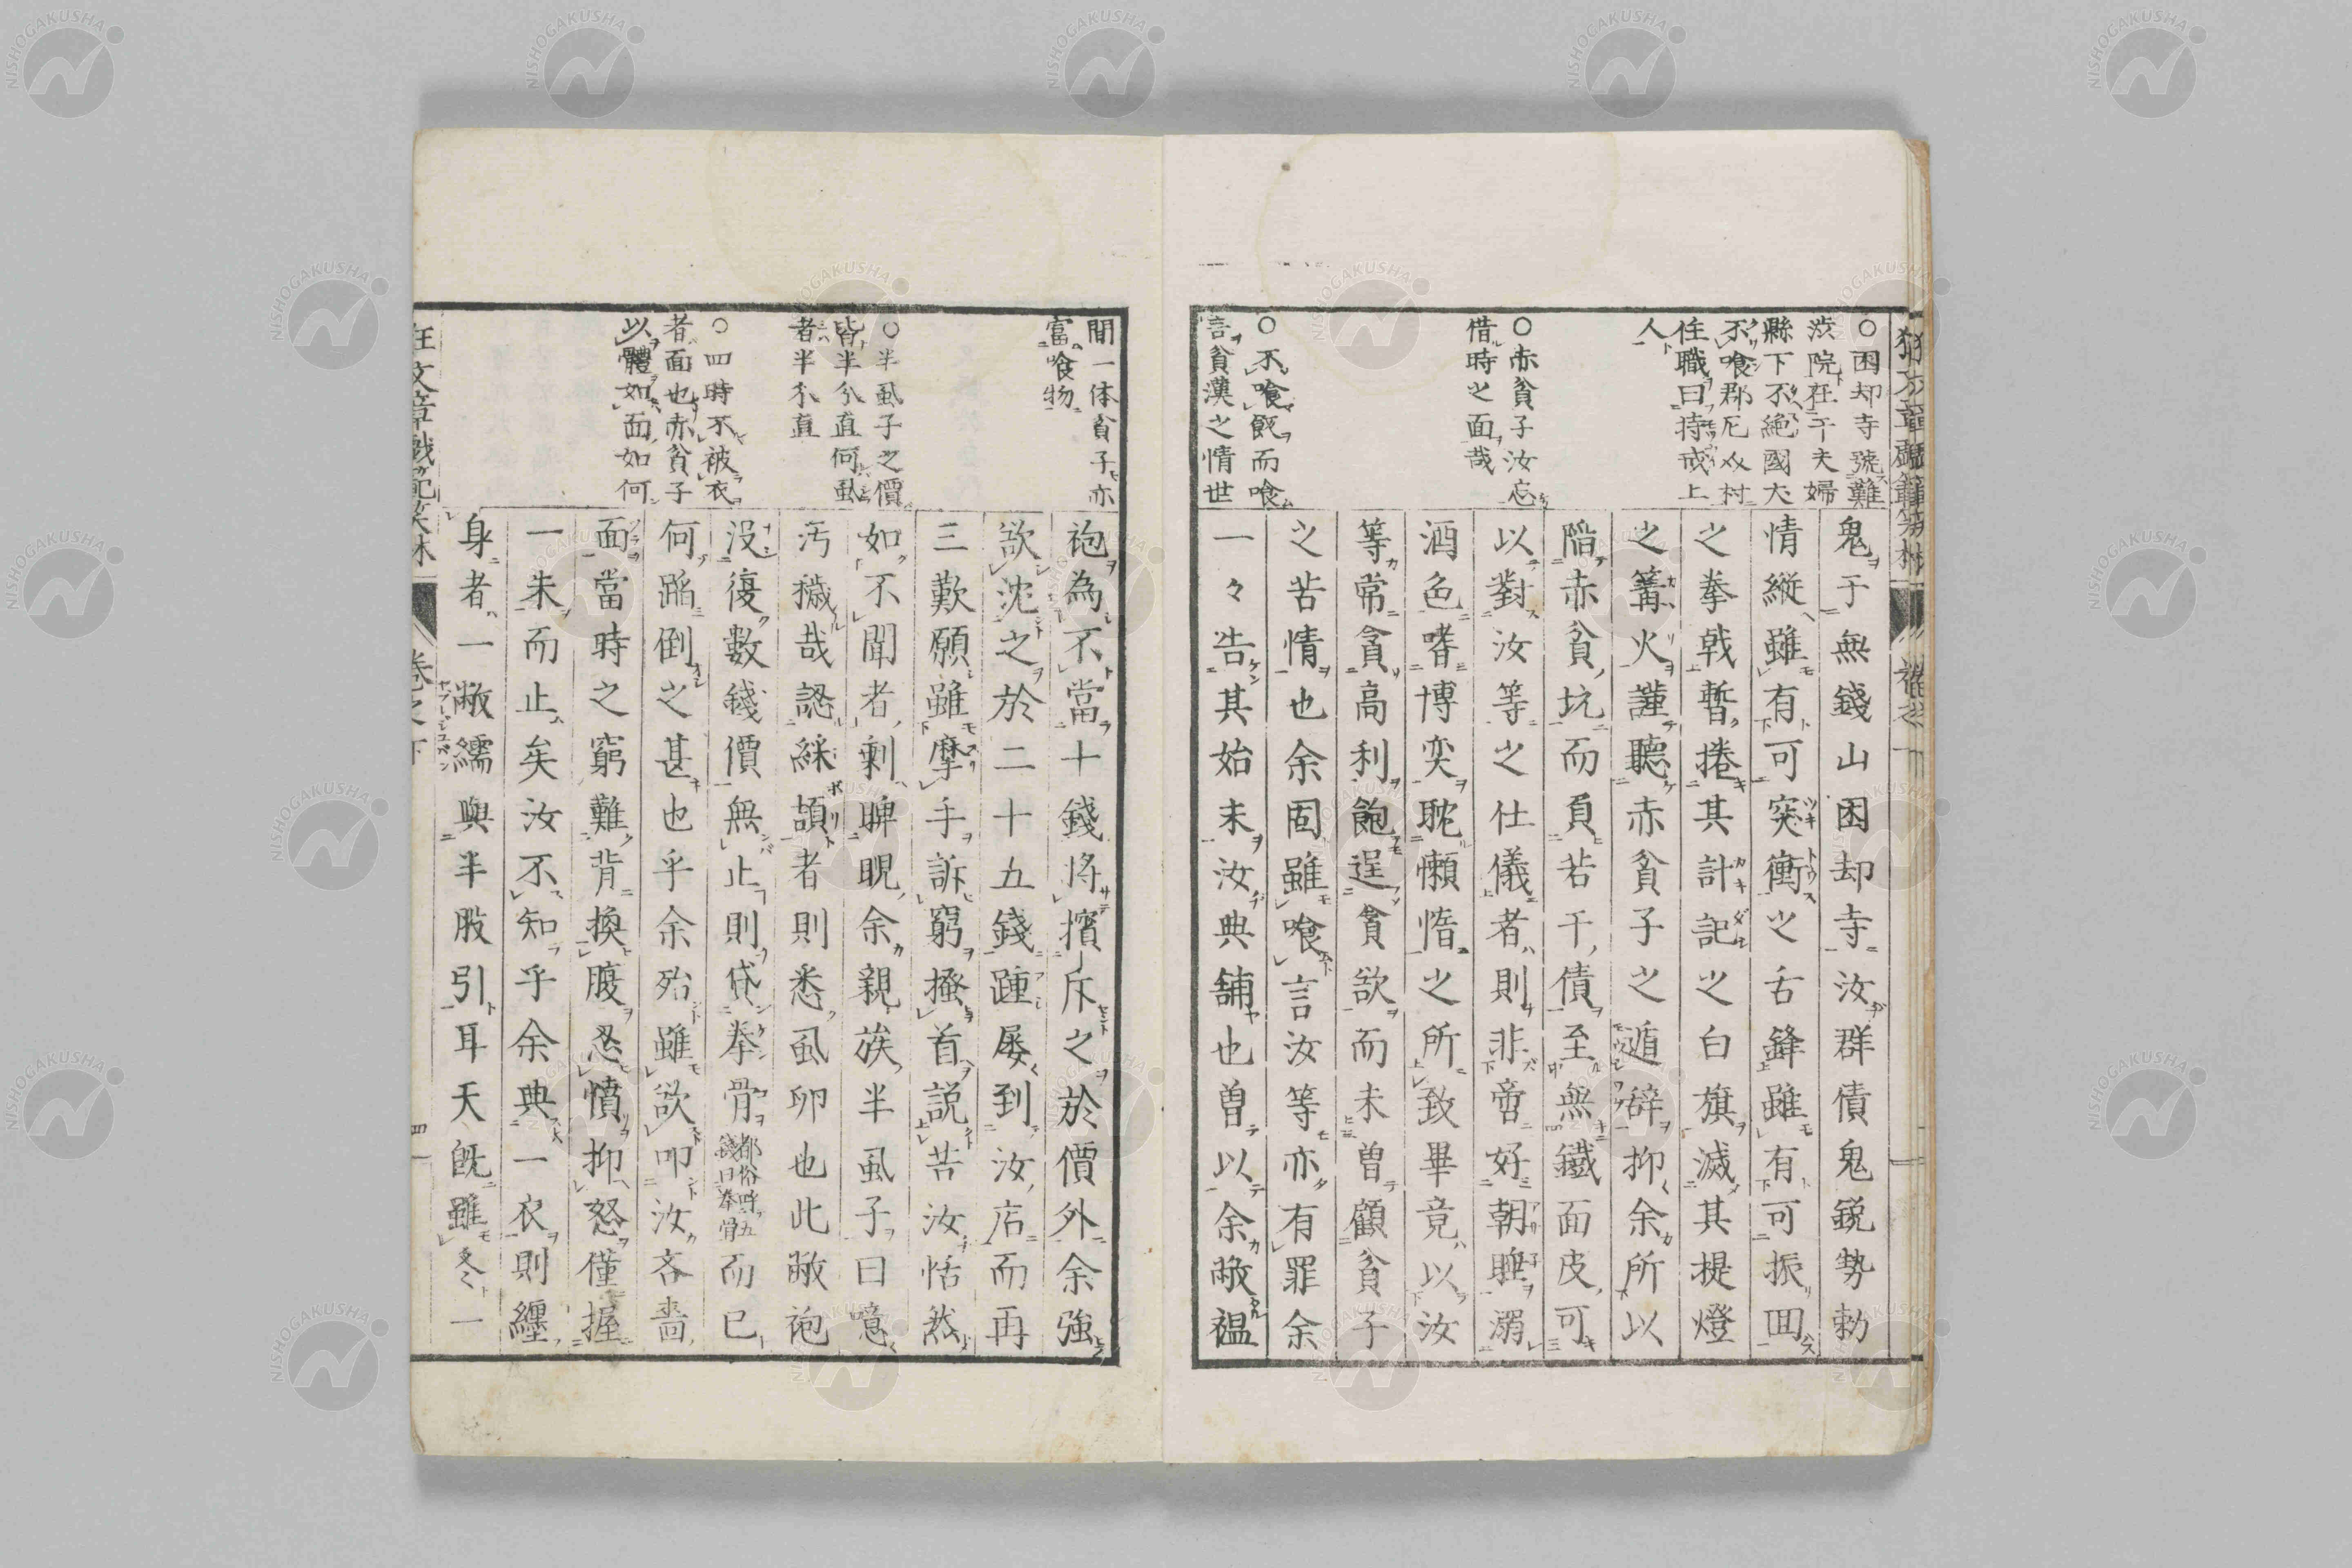 ○困却寺號難
渋院在于夫婦
縣下不絶國大
不喰郡尼〆村
住職曰持戒上
人
○赤貧子汝忘
借時之面哉
○不喰飯而喰
言貧漢之情世
鬼于無錢山困却寺汝群債鬼鋭勢勃
情縦雖有可突衝之舌鋒雖有可振回
之拳戟暫捲其計記之白旗滅其提燈
之篝火謹聽赤貧子之遁辭抑余所以
陥赤貧坑而負若干債至無鐵面皮可
以對汝等之仕儀者則非啻好朝睡溺
酒色嗜博奕耽懶惰之所致畢竟以汝
等常貪高利飽逞貪欲而未曽顧貧子
之苦情也余固雖喰言汝等亦有罪余
一々告其始末汝典舗也曽以余敝褞
間一体貧子亦
富喰物
○半虱子之價
皆半分直何虱
者半分直
○四時不被衣
者面也赤貧子
以體如面如何
袍為不當十錢将擯斥之於價外余強
欲沈之於二十五錢踵屡到汝店而再
三歎願雖摩手訴窮搔首説苦汝恬然
如不聞者剰睥睨余親族半虱子曰噫
汚穢哉認綵頡者則悉虱卵也此敝袍
没復數錢價無止則貸拳骨都俗呼五錢曰拳骨而已
何蹈倒之甚也乎余殆雖欲叩汝吝嗇
面當時之窮難背換腹忍憤抑怒僅握
一朱而止矣汝不知乎余典一衣則纒
身者一敝繻與半股引耳天既雖冬一
狂文章戯範笑林
巻之下